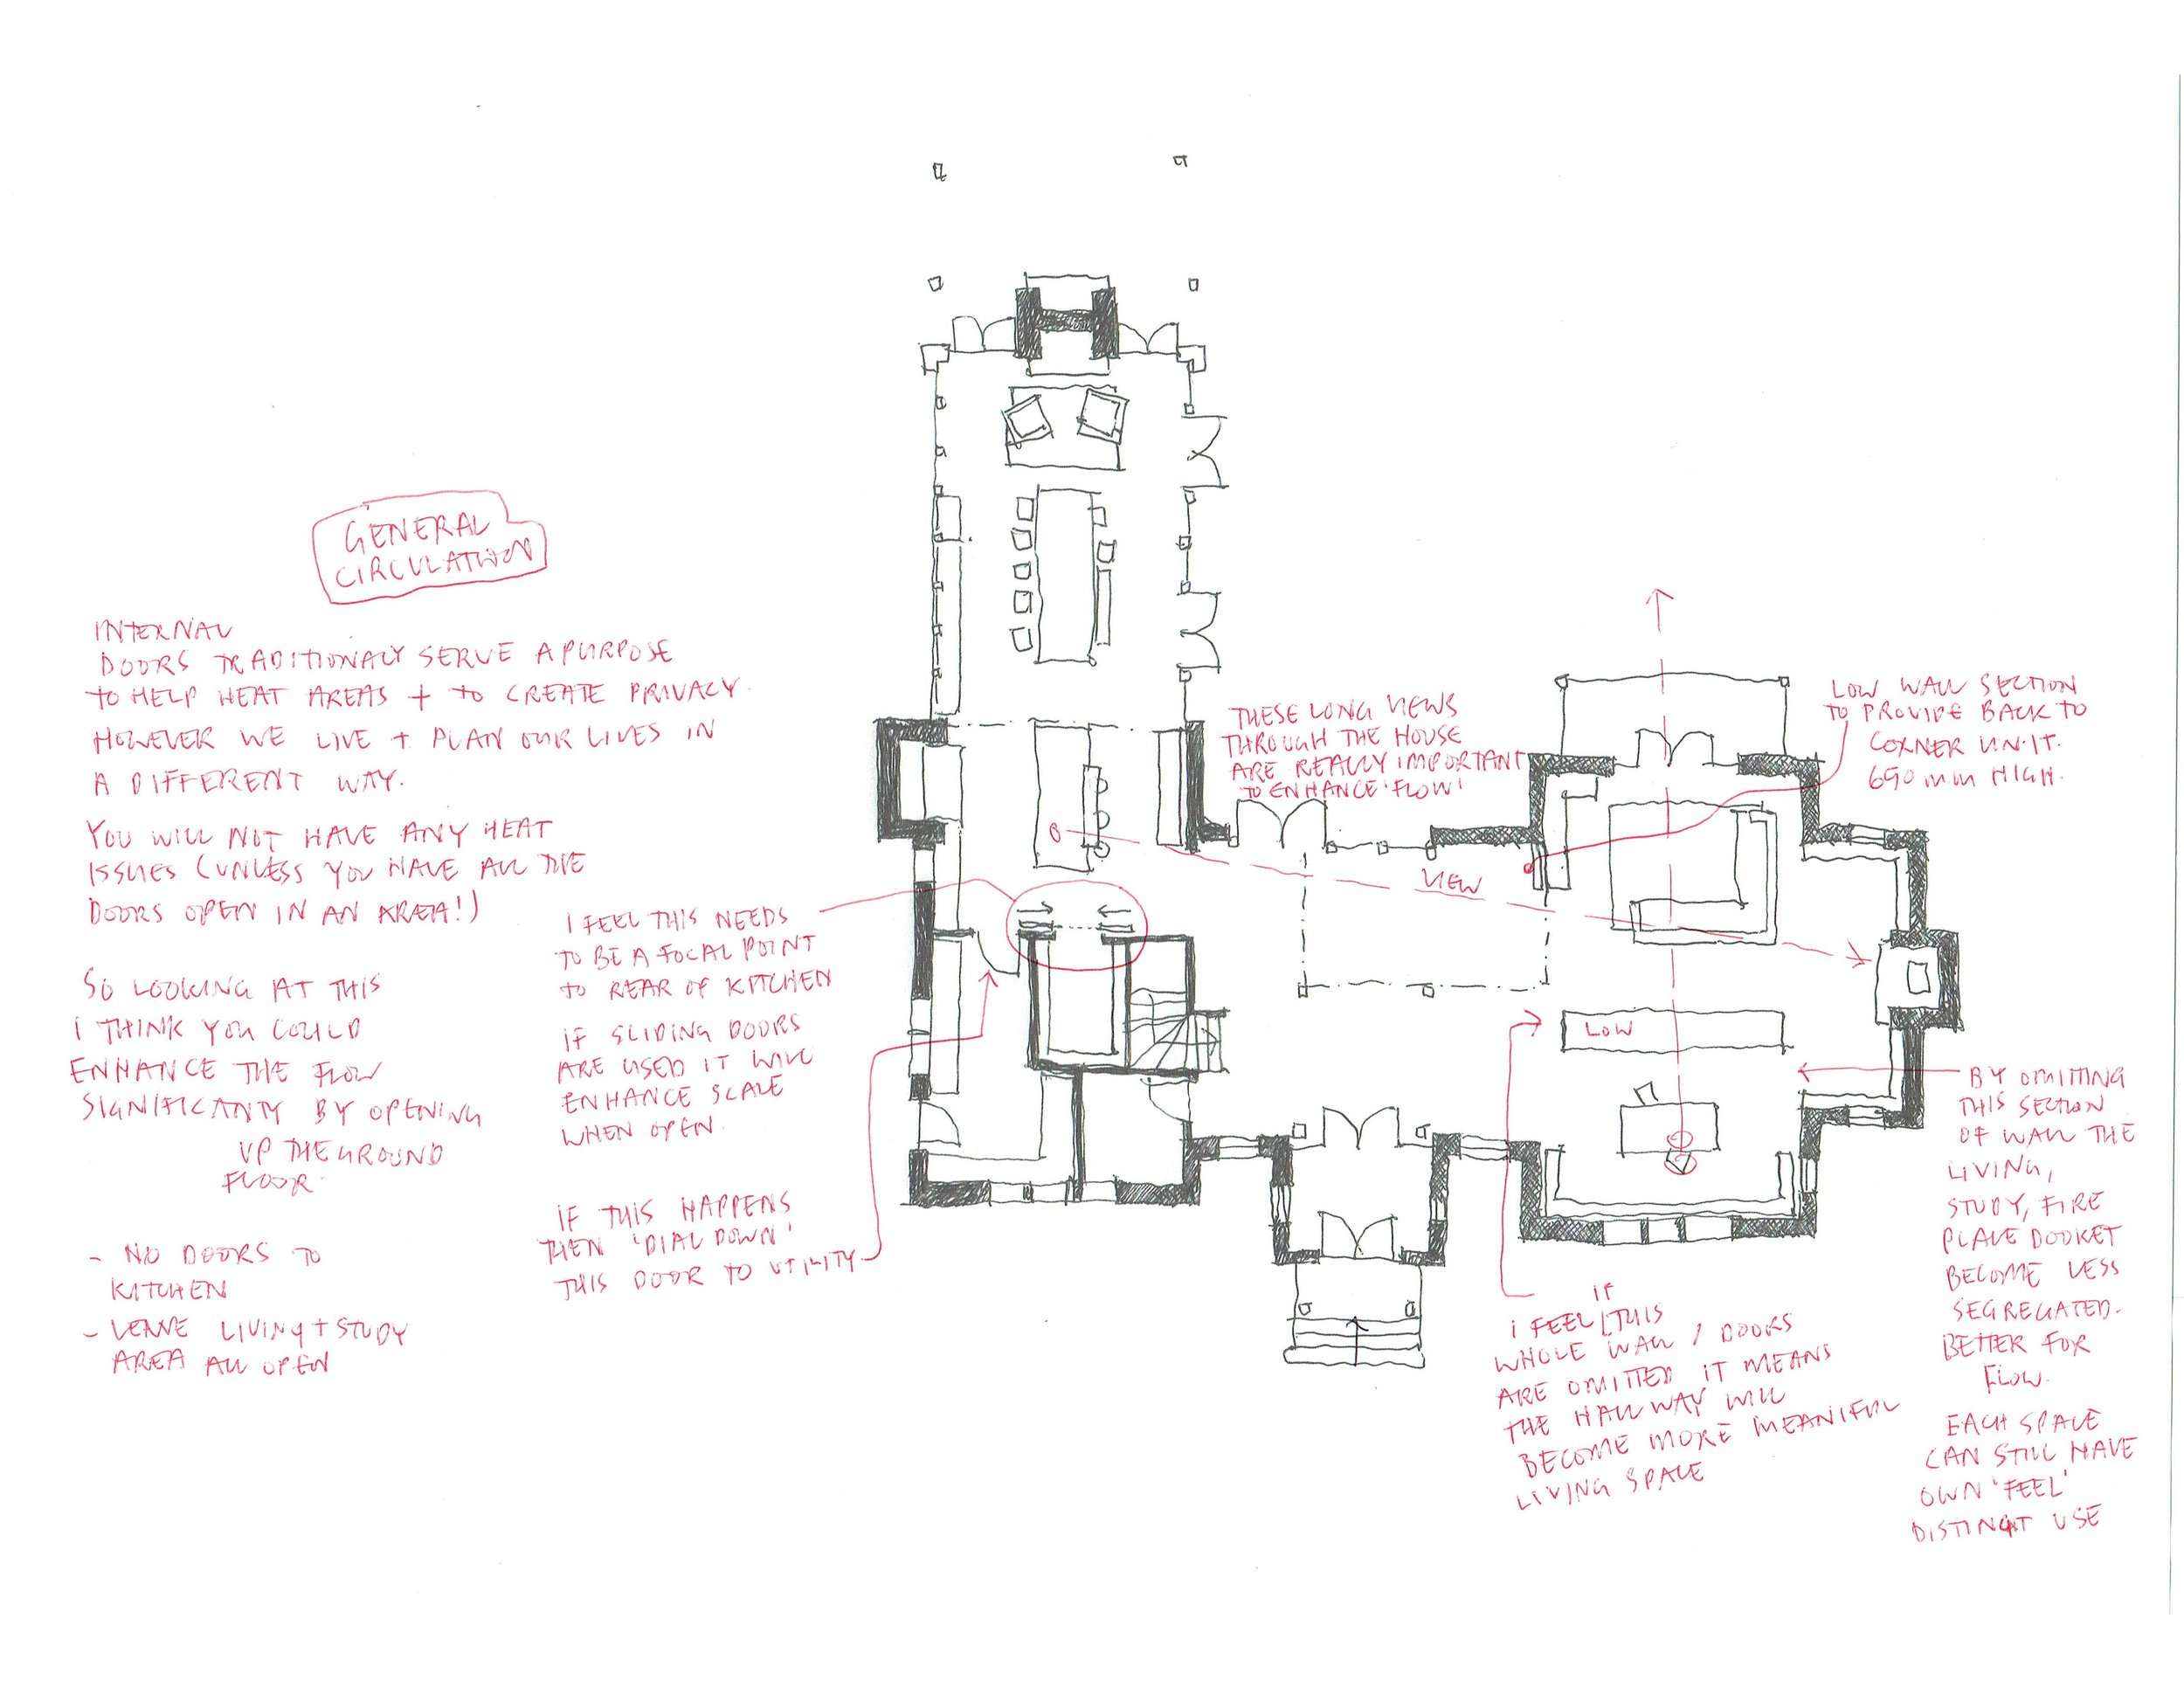 GENERAL
CIRCULATION
INTERNAL
DOORS TRADITIONALY SERVE A PURPOSE
TO HELP HEAT AREAS + TO CREATE PRIVACY.
HOWEVER WE LIVE + PLAN OUR LIVES IN
A DIFFERENT WAY.
YOU WILL NOT HAVE ANY HEAT
ISSUES (UNLESS YOU HAVE ALL THE
DOORS OPEN IN AN AREA!)
SO LOOKING AT THIS
I THINK YOU COULD
ENHANCE THE FLOW
SIGNIFICANTY BY OPENING
UP THE GROUND
FLOOR.
- NO DOORS TO
KITCHEN
- LEAVE LIVING + STUDY
AREA ALL OPEN
I FEEL THIS NEEDS
TO BE A FOCAL POINT
TO REAR OF KITCHEN
IF SLIDING DOORS
ARE USED IT WILL
ENHANCE SCALE
WHEN OPEN.
IF THIS HAPPENS
THEN 'DIAL DOWN'
THIS DOOR TO UTILITY
THESE LONG VIEWS
THROUGH THE HOUSE
ARE REALLY IMPORTANT
TO ENHANCE 'FLOW'
VIEW
LOW WALL SECTION
TO PROVIDE BACK TO
CORNER UNIT.
690mm HIGH.
LOW
BY OMITTING
THIS SECTION
OF WALL THE
LIVING,
STUDY, FIRE
PLACE DOOKET
BECOME LESS
SEGREGATED.
BETTER FOR
FLOW.
EACH SPACE
CAN STILL HAVE
OWN 'FEEL'
DISTINCT USE
IF
I FEEL THIS
WHOLE WALL / DOORS
ARE OMITTED IT MEANS
THE HALLWAY WILL
BECOME MORE MEANIFUL
LIVING SPACE